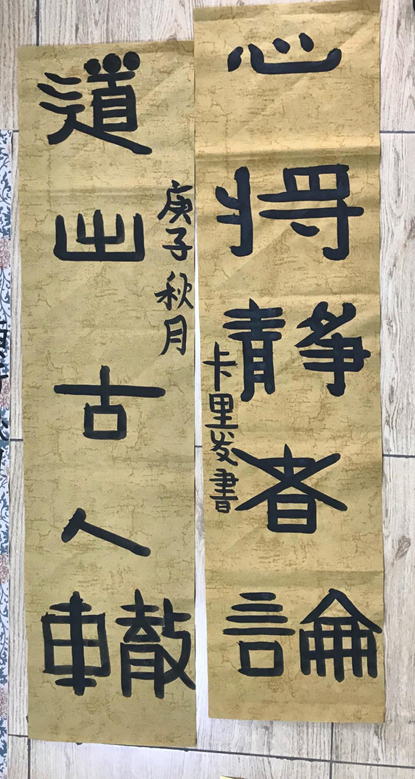 心將靜者論
道出古人轍
庚子秋月
卡里发書